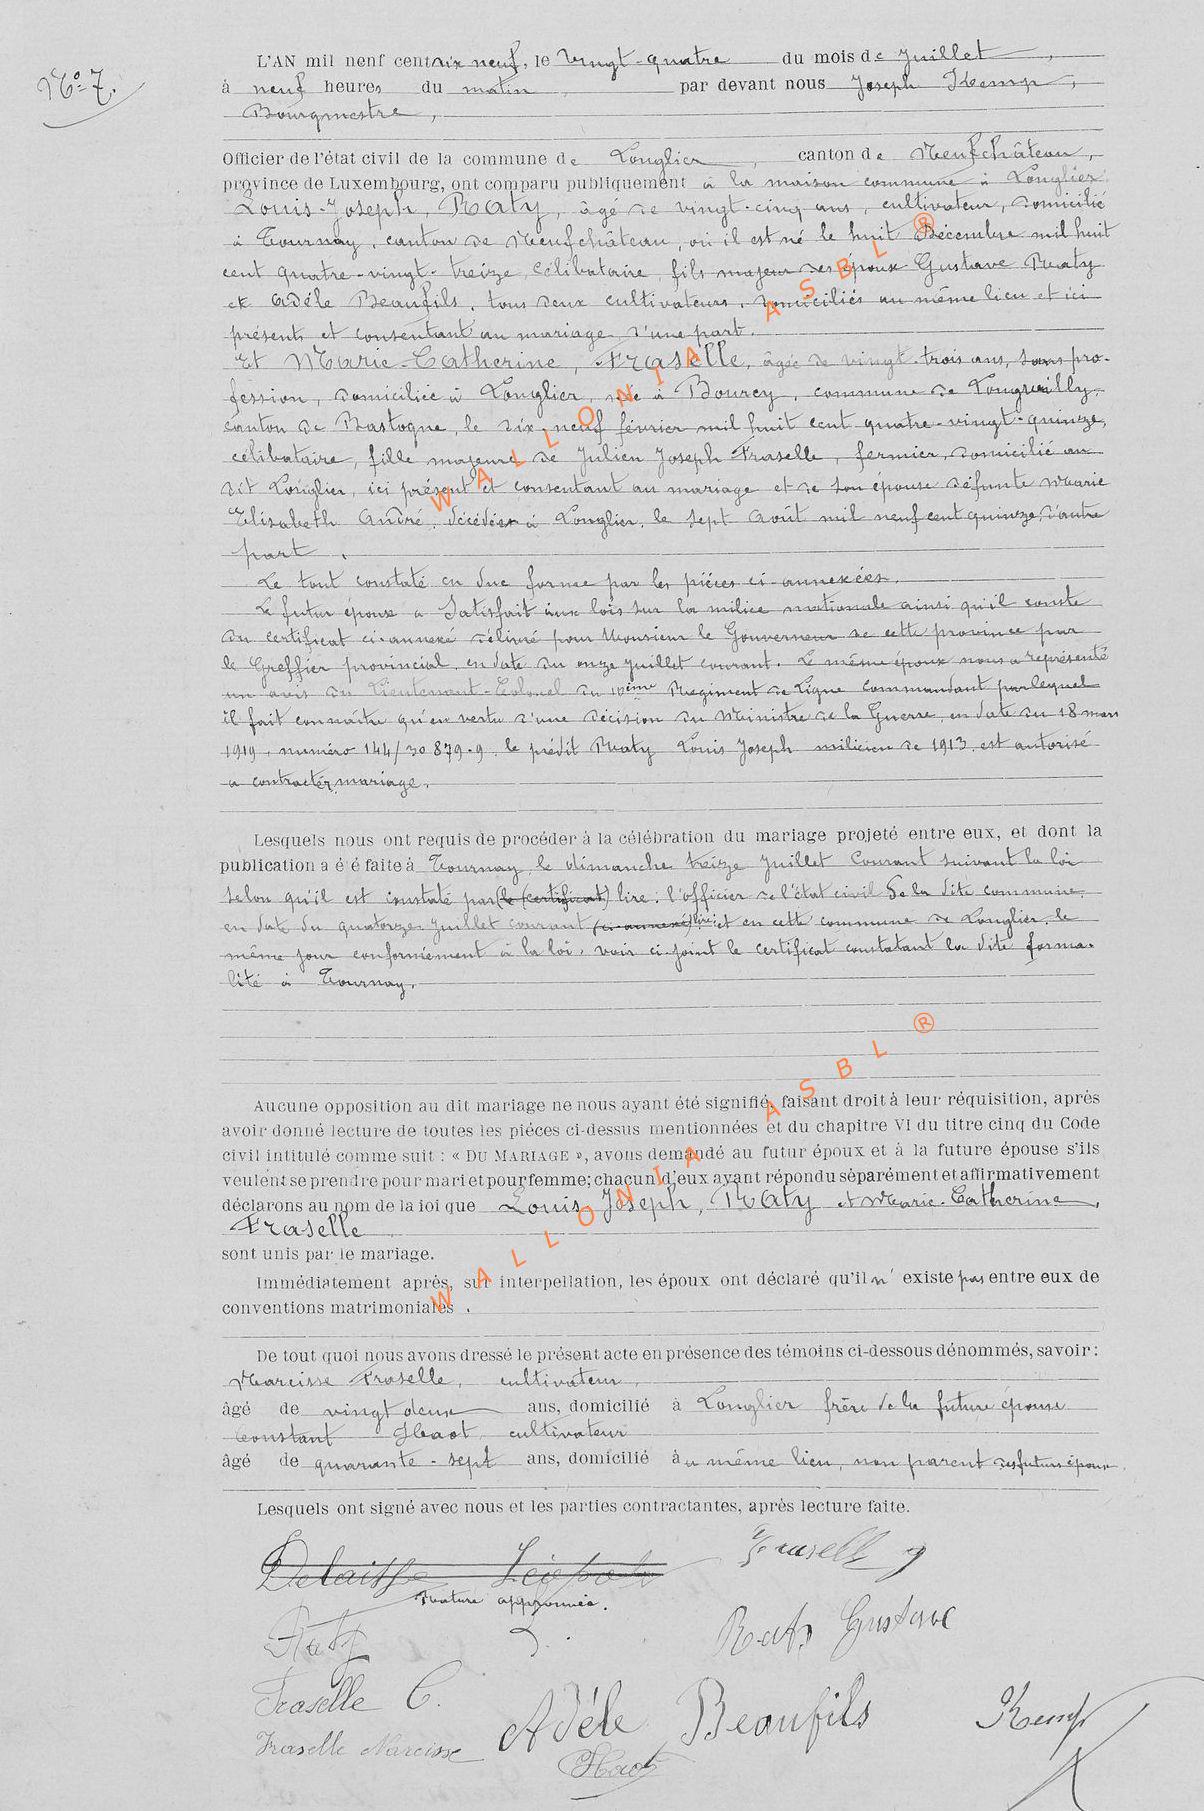 No 7.
L'AN mil neuf cent dix neuf, le vingt-quatre du mois de Juillet,
à neuf heures du matin, par devant nous Joseph Kemp,
Bourgmestre,
Officier de l'état civil de la commune de Longlier, canton de Neufchâteau,
province de Luxembourg, ont comparu publiquement à la maison commune à Longlier
Louis-Joseph, Raty, âgé de vingt-cinq ans, cultivateur, domicilié
à Tournay, canton de Neufchâteau, où il est né le huit Décembre mil huit
cent quatre-vingt-treize, célibataire, fils majeur des époux Gustave Raty
et Adéle Beaufils, tous deux cultivateurs, domiciliés au même lieu et ici
présents et consentant au mariage d'une part.
Et Marie-Catherine, Fraselle, âgée de vingt-trois ans, sans pro-
fession, domiciliée à Longlier, née à Bourcy, commune de Longvilly,
canton de Bastogne, le dix-neuf février mil huit cent quatre-vingt-quinze,
célibataire, fille majeure de Julien Joseph Fraselle, fermier, domicilié au
dit Longlier, ici présent et consentant au mariage et de son épouse défunte Marie
Elisabeth André, décédée à Longlier, le sept Août mil neuf cent quinze, d'autre
part.
Le tout constaté en due forme par les pièces ci-annexées.
Le futur époux a satisfait aux lois sur la milice nationale ainsi qu'il conste
du certificat ci-annexé délivré pour Monsieur le Gouverneur de cette province par
le Greffier provincial, en date du onze Juillet courant. Le même époux nous a représenté
un avis du Lieutenant-Colonel du 10ème Régiment de Ligne commandant par lequel
il fait connaître qu'en vertu d'une décision du Ministre de la Guerre, en date du 18 mars
1919, numéro 144/30 879-9, le prédit Raty Louis Joseph milicien de 1913, est autorisé
a contracter mariage.
Lesquels nous ont requis de procéder à la célébration du mariage projeté entre eux, et dont la
publication a été faite à Tournay, le dimanche treize Juillet Courant suivant la loi
selon qu'il est constaté par (le certificat) lire: l'officier de l'état civil de la dite commune
en date du quatorze Juillet courant (ci-annexé) lire: et en cette commune de Longlier, le
même jour conformément à la loi, voir ci-joint le certificat constatant la dite forma-
lité à Tournay.
Aucune opposition au dit mariage ne nous ayant été signifié, faisant droit à leur réquisition, après
avoir donné lecture de toutes les piéces ci-dessus mentionnées et du chapitre VI du titre cinq du Code
civil intitulé comme suit : « DU MARIAGE », avons demandé au futur époux et à la future épouse s'ils
veulent se prendre pour mari et pour femme; chacun d'eux ayant répondu séparément et affirmativement
déclarons au nom de la loi que Louis Joseph, Raty et Marie-Catherine,
Fraselle
sont unis par le mariage.
Immédiatement après, sur interpellation, les époux ont déclaré qu'il n'existe pas entre eux de
conventions matrimoniales.
De tout quoi nous avons dressé le présent acte en présence des témoins ci-dessous dénommés, savoir :
Narcisse Fraselle, cultivateur,
âgé de vingt deux ans, domicilié à Longlier frère de la future épouse
Constant Haot, cultivateur
âgé de quarante-sept ans, domicilié au même lieu, non parent des futurs époux
Lesquels ont signé avec nous et les parties contractantes, après lecture faite.
Delaisse Léopold
Fraselle J
Rature approuvée.
Raty
Raty Gustave
Fraselle C.
Adéle Beaufils
Kemp
Fraselle Narcisse
Haot
WALLONIA ASBL ®
WALLONIA ASBL ®